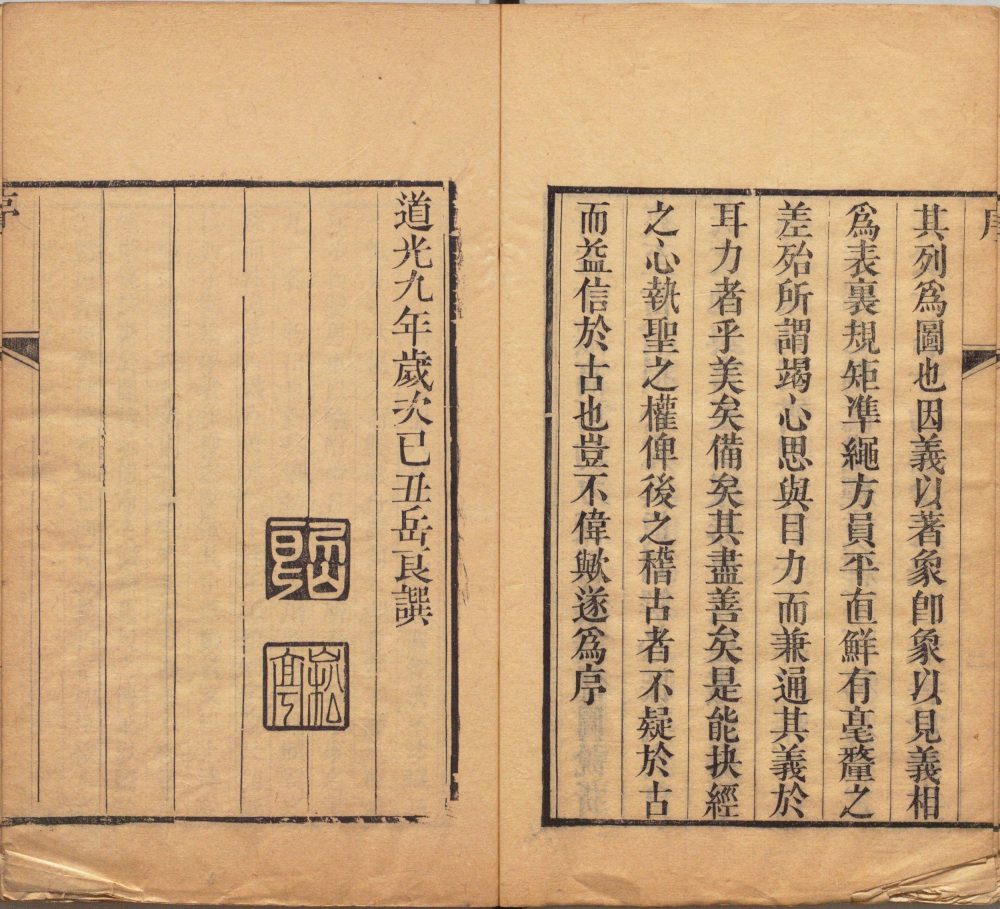 序
其列爲圖也因義以著象卽象以見義相
爲表裏規矩準繩方員平直鮮有毫釐之
差殆所謂竭心思與目力而兼通其義於
耳力者乎美矣備矣其盡善矣是能抉經
之心執聖之權俾後之稽古者不疑於古
而益信於古也豈不偉歟遂爲序
道光九年歲次己丑岳良譔
崧
亭
序